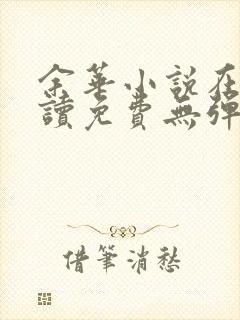 余華小說在
讀免費無彈
借筆消愁